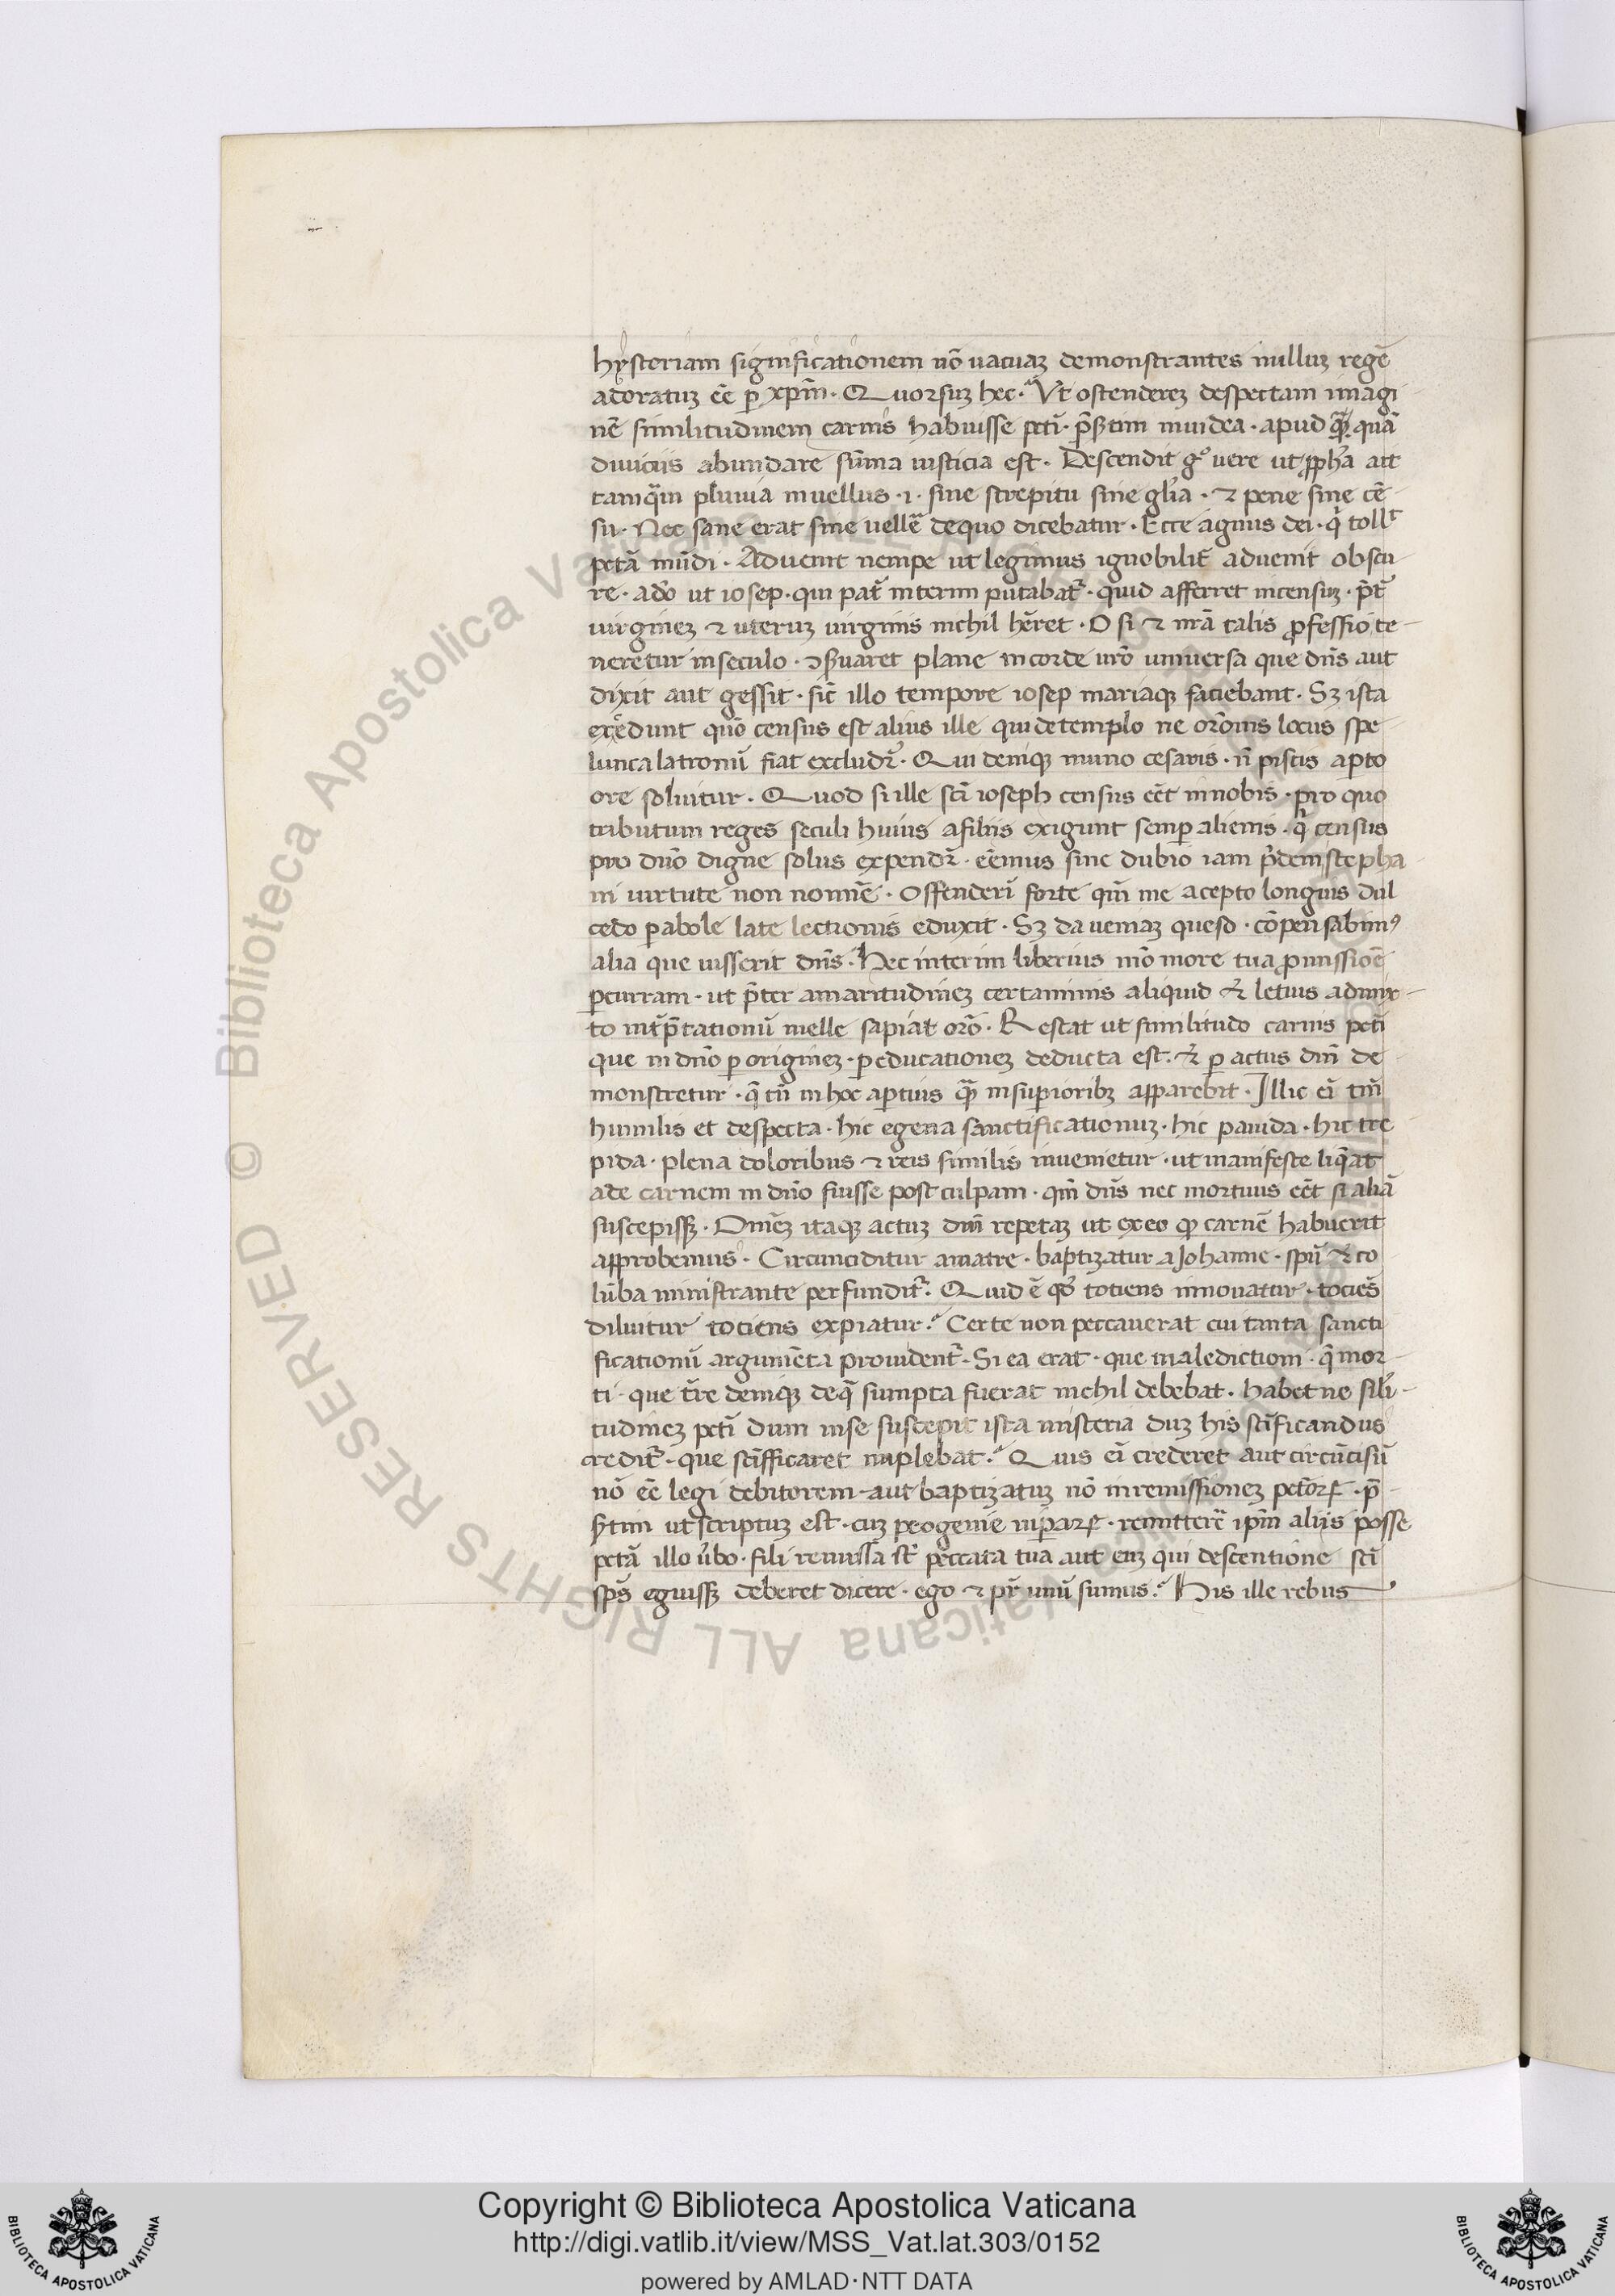 hẏsteriam significationem nō uacuaʒ demonstrantes nulluʒ regē
adoratuʒ eē ꝑ xp̄m̄. Quorsuʒ hec. Vt ostendereʒ despectam imagi
nē similitudinem carnis habuisse pcti. p̄s̄tim iniudea. apud quā
diuiciis abundare sūma iusticia est. Descendit gͦ uere ut ꝓph̄a ait
tamq̄m pluuia inuellus. i. sine strepitu sine gl̄ia. ⁊ pene sine cē
su. Nec sane erat sine uellē dequo dicebatur. Ecce agnus dei. q̄ toll̄t
pctā mūdi. Aduenit nempe ut legimus ignobilit̄ aduenit obscu
re. adō ut iosep. qui pat̄ interim putabat̄. quid afferret incensuʒ. p̄t̄
uirgineʒ ⁊ uteruʒ uirginis nichil hēret. O si ⁊ nr̄ā talis ꝓfessio te
neretur inseculo. ꝯs̄uaret plane incorde ur̄o uniuersa que dn̄s aut
dixit aut gessit. sic̄ illo tempore iosep mariaqꝫ faciebant. Sʒ ista
excedunt quō census est alius ille qui detemplo ne or̄onis locus spe
lunca latronū fiat excludr̄. Qui deniqꝫ nūmo cesaris. n̄ piscis aꝑto
ore soluitur. Quod si ille sc̄i ioseph census eēt innobis. pro quo
tributum reges seculi huius afiliis exigunt semꝑ alienis. q̄ census
pro dn̄o digne solus expendr̄. eēmus sine dubio iam p̄dem stepha
ni uirtute non nomīē. Offenderī forte qm̄ me acepto longius dul
cedo ꝑabole late lectionis eduxit. Sʒ da ueniaʒ queso. cōpensabimꝰ
alia que iusserit dn̄s. Hec interim liberius mō more tua ꝓmissiōē
ꝑcurram. ut p̄ter amaritudineʒ certaminis aliquid ⁊ letius admix
to int̄p̄tationū melle sapiat or̄o. Restat ut similitudo carnis pcti
que in dn̄o ꝑ origineʒ. ꝑ educationeʒ deducta est. ⁊ ꝑ actus dn̄i de
monstretur. q̄ tū in hoc aꝑtius quā insuꝑioribꝫ apparebit. Illic ei tm̄
humilis et despecta. hic egena sanctificationuʒ. hic pauida. hic tre
pida. plena doloribus ⁊ reis similis inuenietur. ut manifeste liq̄at
ade carnem in dn̄o fuisse post culpam. qm̄ dn̄s nec mortuus eēt si aliā
suscepissꝫ. Om̄eʒ itaqꝫ actuʒ dn̄i repetaʒ ut exeo ꝙ carnē habuerit
approbemus. Circunciditur amatre. baptizatur a Johanne. spū ⁊ co
lūba ministrante perfundit̄. Quid ē qͦ totiens innouatur. tociēs
diluitur tociens expiatur. Certe non peccauerat cui tanta sancti
ficationū argumēta prouident̄. Si ea erat. que maledictioni. q̄ mor
ti. que t̄re deniqꝫ deq̄ sumpta fuerat nichil debebat. habet ne sili
tudineʒ pcti dum inse suscepit ista misteria duʒ his sc̄ificandus
credit̄. que sc̄ifficaret implebat. Quis ei crederet aut circūcisū
nō eē legi debitorem. aut baptizatuʒ nō inremissioneʒ pctōꝝ. p̄
s̄tim ut scriptuʒ est. cuʒ progenie uiꝑaꝝ. remitterē ip̄m aliis posse
pctā illo ūbo. fili remissa st̄ peccata tua aut euʒ qui descentione sci
sp̄s eguissꝫ deberet dicere. ego ⁊ pr̄ unū sumus. His ille rebus
Copyright © Biblioteca Apostolica Vaticana
http://digi.vatlib.it/view/MSS_Vat.lat.303/0152
powered by AMLAD·NTT DATA